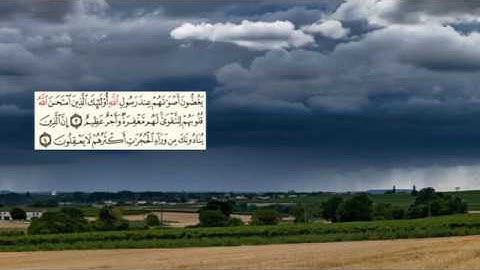 يَغُضُّونَ أَصْوَٰتَهُمْ عِندَ رَسُولِ ٱللَّهِ أُو۟لَٰٓئِكَ ٱلَّذِينَ ٱمْتَحَنَ ٱللَّهُ
قُلُوبَهُمْ لِلتَّقْوَىٰ لَهُم مَّغْفِرَةٌ وَأَجْرٌ عَظِيمٌ ٣ إِنَّ ٱلَّذِينَ
يُنَادُونَكَ مِن وَرَآءِ ٱلْحُجُرَٰتِ أَكْثَرُهُمْ لَا يَعْقِلُونَ ٤